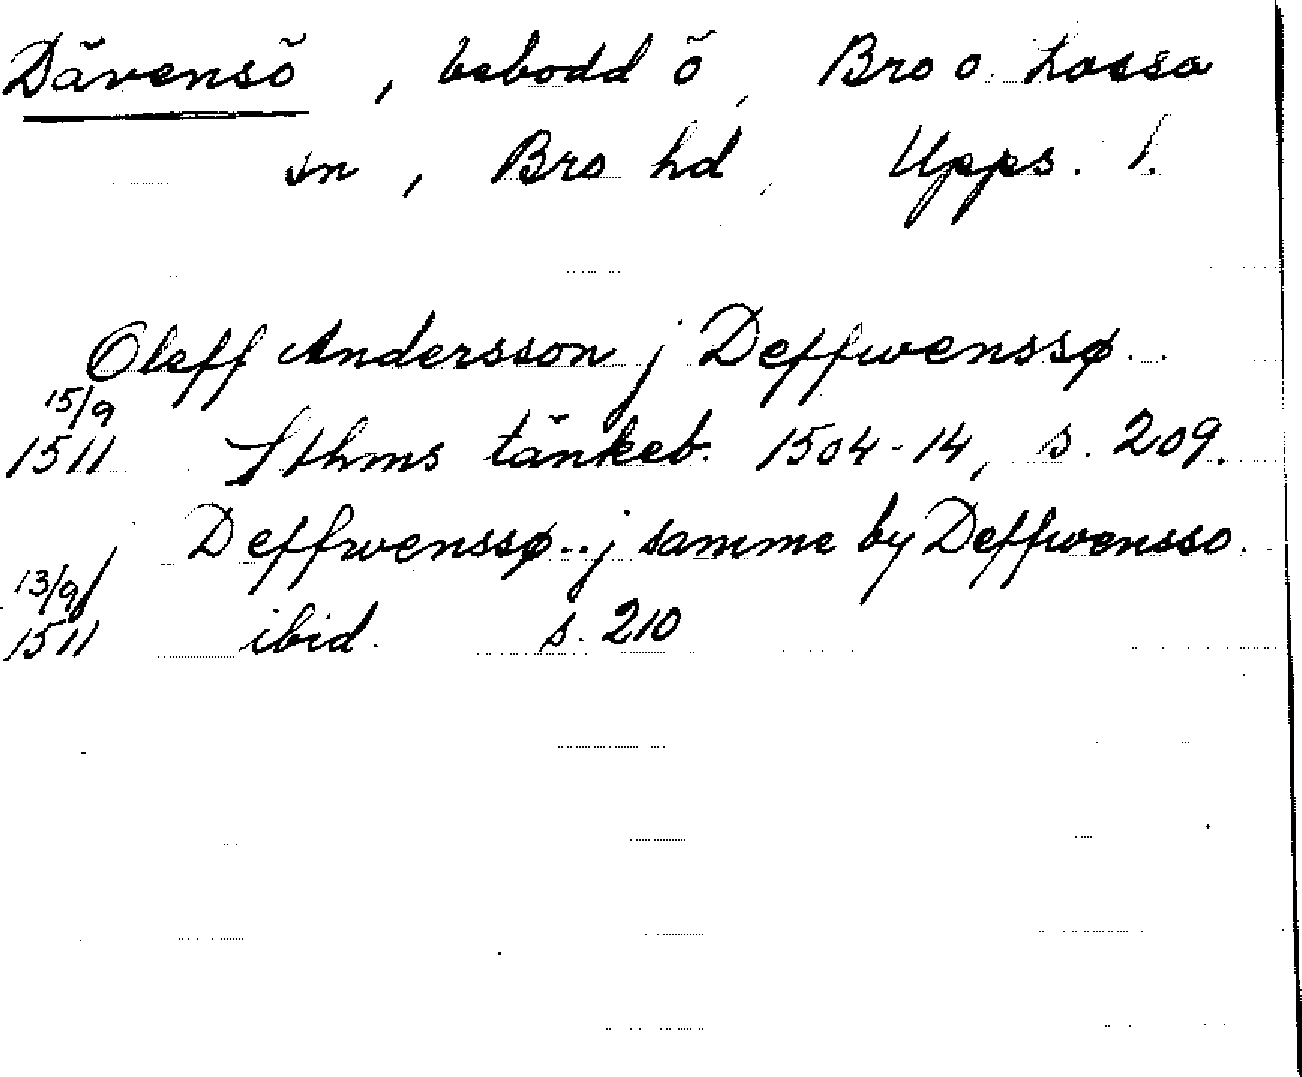 Dävensö, bebodd ö, Bro o. Lossa
sn, Bro hd, Upps. l.
Oleff Andersson j Deffwenssø..
15/9
1511 Sthms tänkeb. 1504-14, s. 209.
j Deffwenssø..j samme by Deffwensso.
13/9
1511 ibid. s. 210